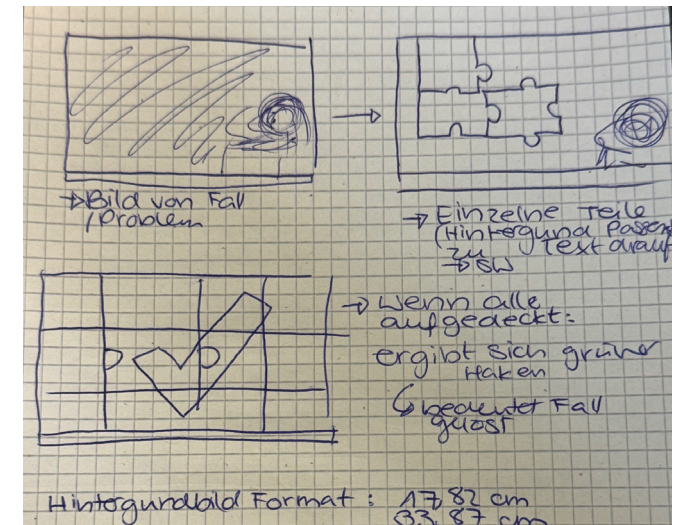 → Bild von Fall
/Problem
→ Einzelne Teile
(Hintergund Passend
zu Text drauf
→ SW
→ Wenn alle
aufgedeckt:
ergibt sich grüner
Haken
↳ bedeutet Fall
gelöst
Hintergundbild Format : 17,82 cm
33,87 cm